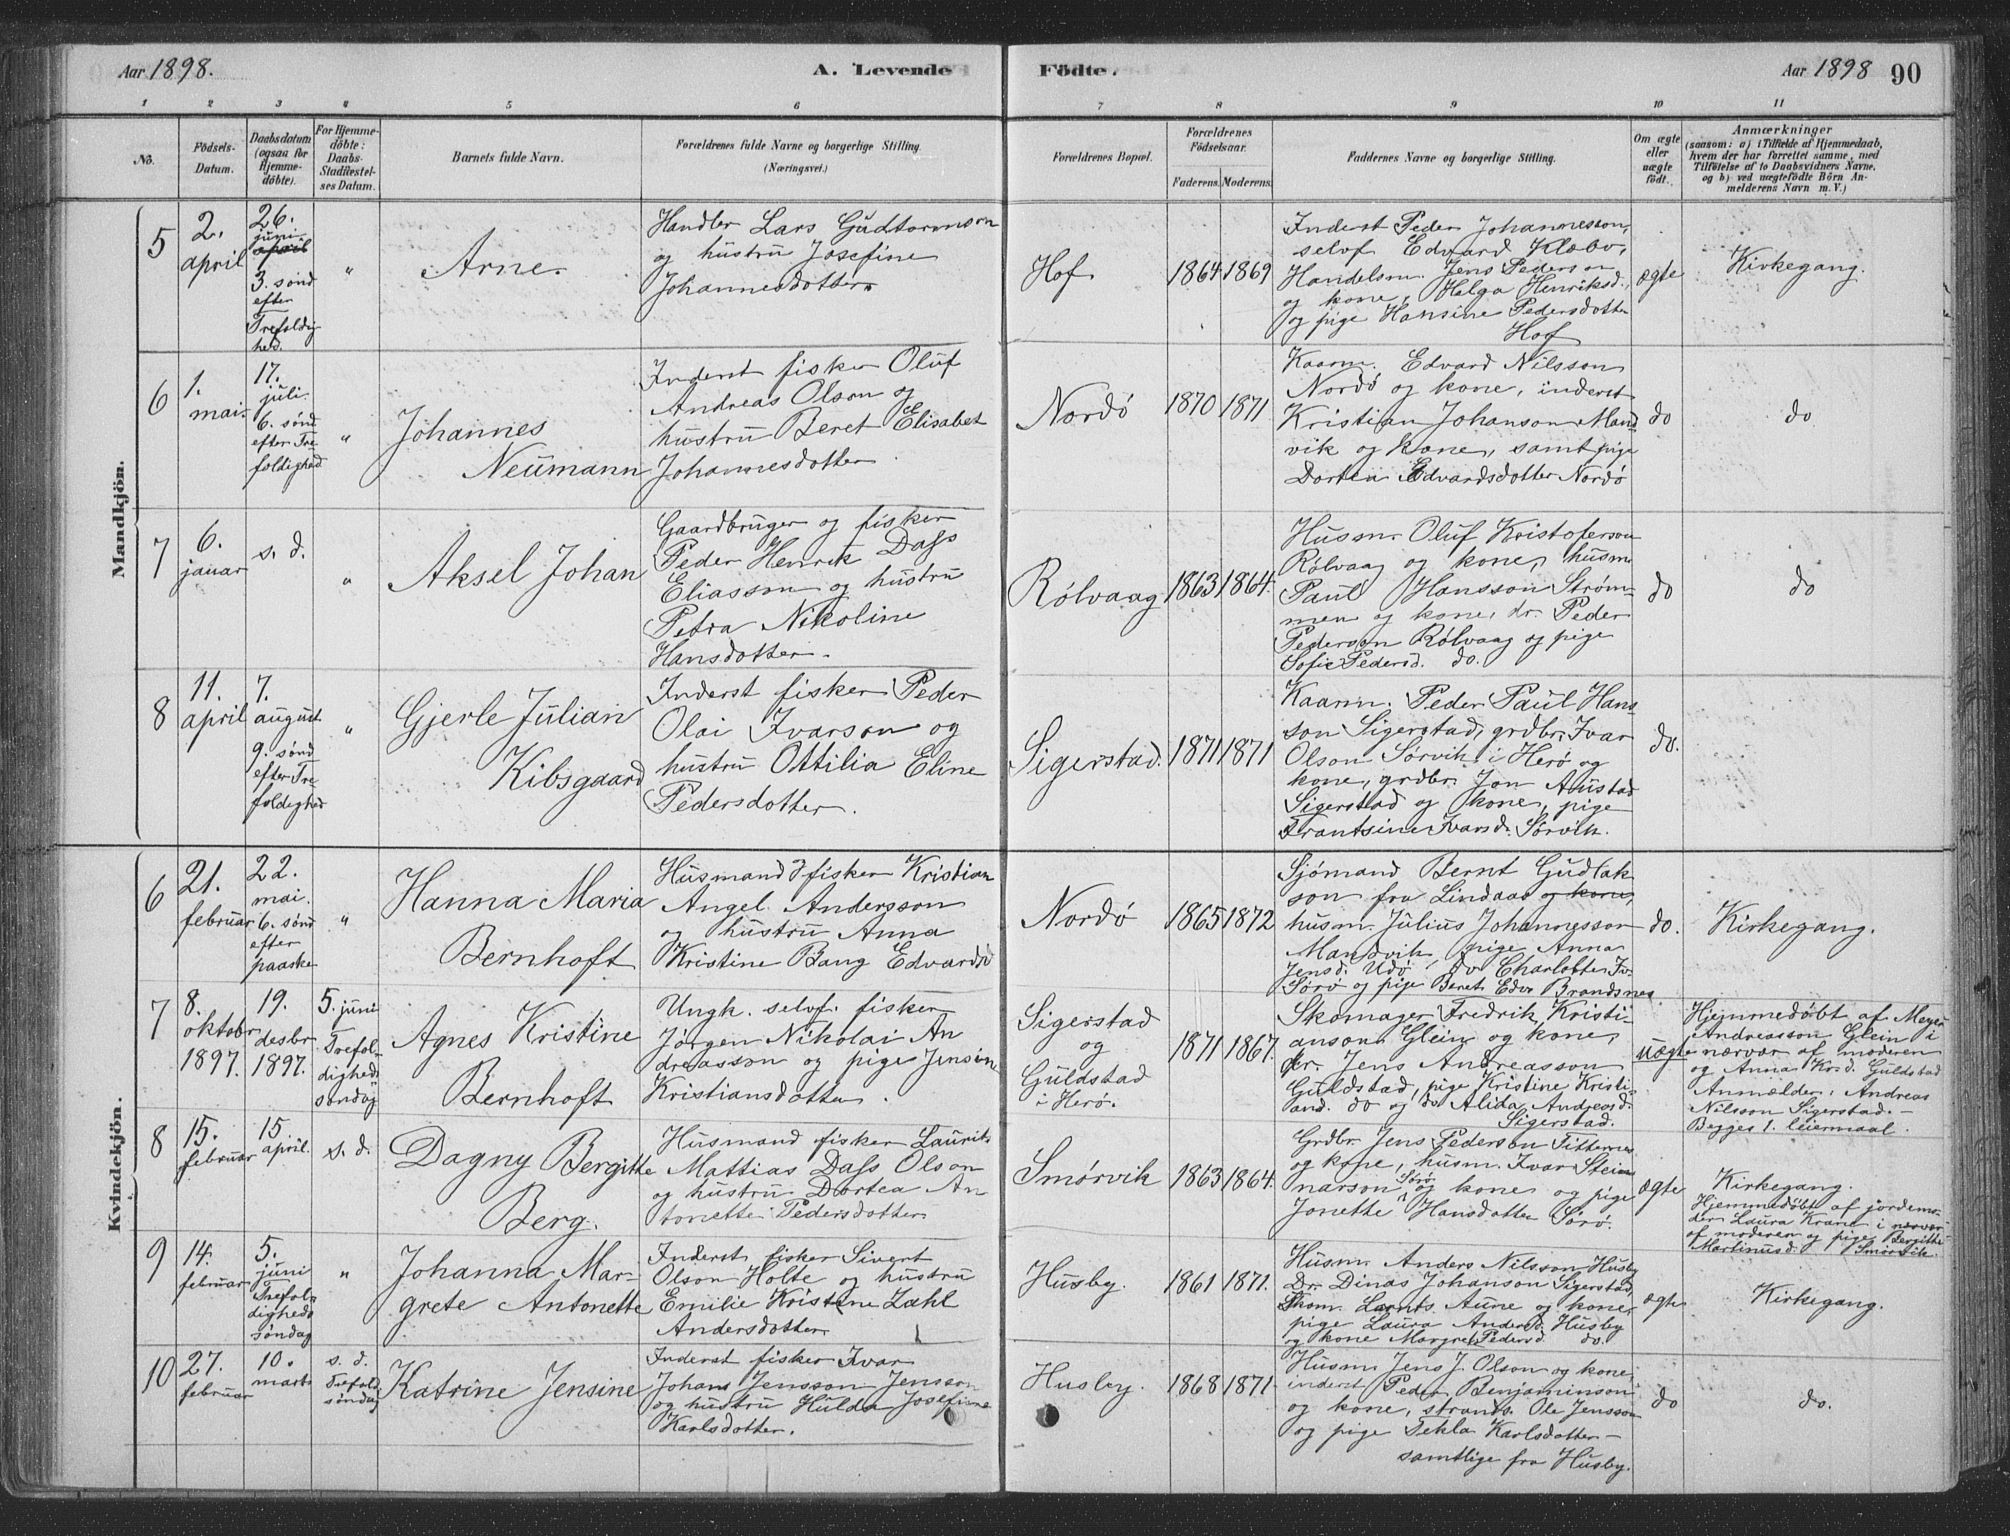 Aar 1898.
A. Levende
Födte.
Aar 1898
90
1 2 3 4 5 6 7 8 9 10 11
No.
Födsels-
Datum.
Daabsdatum
(ogsaa for
Hjemme-
döbte).
For Hjemme-
döbte:
Daabs-
Stadfæstel-
ses Datum.
Barnets fulde Navn.
Forældrenes fulde Navne og borgerlige Stilling.
(Næringsvei.)
Forældrenes Bopæl.
Forældrenes
Födselsaar.
Faderens. Moderens.
Faddernes Navne og borgerlige Stilling.
Om ægte
eller
uægte
födt.
Anmærkninger
(saasom: a) i Tilfælde af Hjemmedaab,
hvem der har forrettet samme, med
Tilföielse af to Daabsvidners Navne,
og b) ved uægtefödte Börn An-
melderens Navn m. V.)
Mandkjön.
5
2.
april
26.
juni
april
3. sønd
efter
Trefoldig
hed.
"
Arne.
Handler Lars Guttormson
og hustru Josefine
Johannesdotter.
Hof
1864 1869
Inderst Peder Johannesson,
selvf Edvard Klæbo,
Handelsm. Jens Pederson
og kone, Helga Henriksd.,
og pige Hansine Pedersdotter
Hof
ægte
Kirkegang.
6
1.
mai.
17.
juli.
6. sønd
efter Tre
foldighed
"
Johannes
Neumann
Inderst fisker Oluf
Andreas Olson og
hustru Beret Elisabet
Johannesdotter
Nordö
1870 1871
Kaarm. Edvard Nilsson
Nordö og kone, inderst
Kristian Johanson Mand
vik og kone, samt pige
Dortea Edvardsdotter Nordö
do
do
7
6.
januar
s. d.
"
Aksel Johan
Gaardbruger og fisker
Peder Henrik Dass
Eliasson og hustru
Petra Nikoline
Hansdotter.
Rölvaag
1863 1864.
Husm. Oluf Kristoferson
Rölvaag og kone, husm
Paul Hansson Strøm-
men og kone, dr. Peder
Pederson Rölvaag og pige
Sofie Pedersd. do.
do
do
8
11.
april
7.
august.
9. sønd
efter Tre
foldighed
"
Gjerle Julian
Kibsgaard
Inderst fisker Peder
Olai Ivarson og
hustru Ottilia Eline
Pedersdotter.
Sigerstad.
1871 1871
Kaarm. Peder Paul Hans-
son Sigerstad, grdbr. Ivar
Olson Sørvik i Herø og
kone, grdbr. Jon Austad
Sigerstad og kone, pige
Frantsine Ivarsd. Sørvik.
do.
Kvindekjön.
6
21.
februar
22.
mai.
6. sønd
efter
paaske
"
Hanna Maria
Bernhoft
Husmand & fisker Kristian
Angel Andersson
og hustru Anna
Kristine Bang Edvardsd
Nordö
1865 1872
Sjömand Bernt Gudlak
son fra Lindaas og kone,
husm. Julius Johannesson
Mandvik, pige Anna
Jensd. Udö, do Charlotte Iv.
Sörö og pige Beret Edv. Brandsnes.
do.
Kirkegang.
7
8.
oktobr
1897.
19.
desbr
1897.
5. juni
Trefol-
digheds
söndag
Agnes Kristine
Bernhoft
Ungk. selvf. fisker
Jörgen Nikolai An
dreasson og pige Jensine
Kristiansdotter.
Sigerstad
og
Guldstad
i Herö.
1871 1867.
Skomager Fredrik Kristi-
anson Glein og kone,
dr. Jens Andreasson
Guldstad, pige Kristine Kristi-
and. do og do Alida Andreasd.
Sigerstad.
uægte
Hjemmedøbt af Meyer
Andreasson Glein i
nærvær af moderen
og Anna Krsd. Guldstad
Anmelder: Andreas
Nilsson Sigerstad.-
Begges 1. leiermaal.
8
15.
februar
15
april.
s. d.
Dagny Bergitte
Berg.
Husmand fisker Laurits
Mattias Dass Olson
og hustru Dortea An
tonette Pedersdotter
Smörvik
1863 1864.
Grdbr. Jens Pederson Titternes
og kone, husm. Ivar Stein
narson Sörö og kone og pige
Jonette Hansdotter Sörö.
ægte
Kirkegang.
Hjemmedøbt af jordemo-
der Laura Krane i nærvær
af moderen og pige Bergitte
Martinusd. Smörvik.
9
14.
februar
5.
juni
Trefol-
digheds
söndag
"
Johanna Mar-
grete Antonette
Inderst fisker Sivert
Olson Holte og hustru
Emilie Kristine Zahl
Andersdotter
Husby.
1861 1871.
Husm. Anders Nilsson Husby
Dr. Dinas Johanson Sigerstad,
Skom. Lornts Aune og kone,
pige Laura Andersd. Husby
og kone Margret Pedersd do.
ægte
Kirkegang.
10
27.
februar
10.
marts
s. d.
Trefold.
söndag
Katrine Jensine
Inderst fisker Ivar
Johans Jensson Jensson
og hustru Hulda Josefine
Karlsdotter.
Husby.
1868 1871.
Husm. Jens J. Olson og kone,
inderst Peder Benjaminson
og kone, strands. Ole Jensson
og pige Tekla Karlsdotter -
samtlige fra Husby.
do
do.